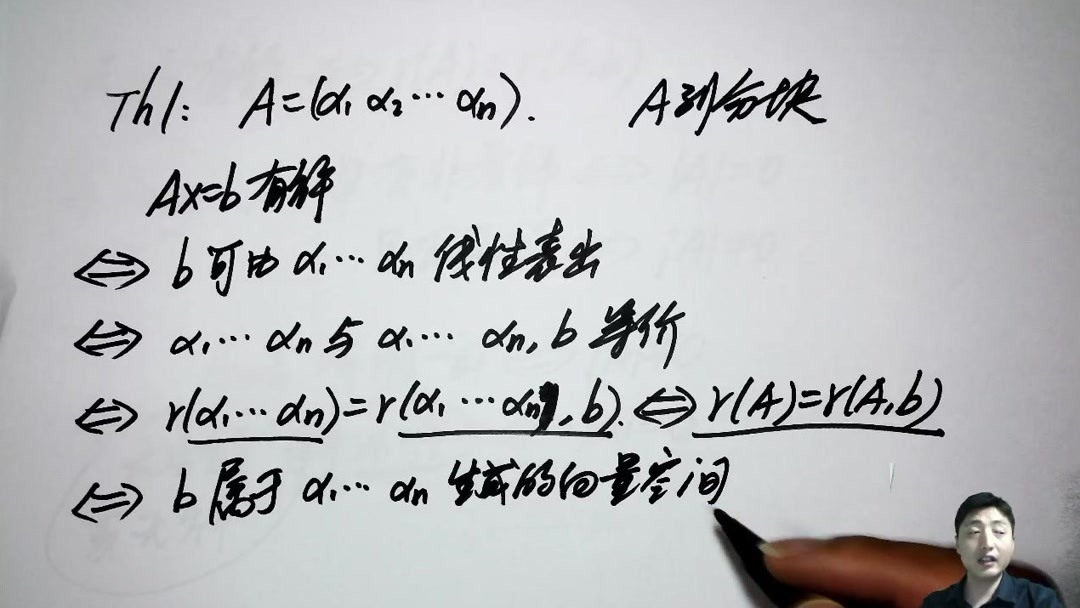 Th1: A=(α₁ α₂ ⋯ αₙ). A列分块
Ax=b 有解
⟺ b 可由 α₁⋯ αₙ 线性表出
⟺ α₁⋯ αₙ 与 α₁⋯ αₙ, b 等价
⟺ r(α₁⋯αₙ)=r(α₁ ⋯αₙ, b). ⟺ r(A)=r(A,b)
⟺ b 属于 α₁⋯ αₙ 生成的向量空间